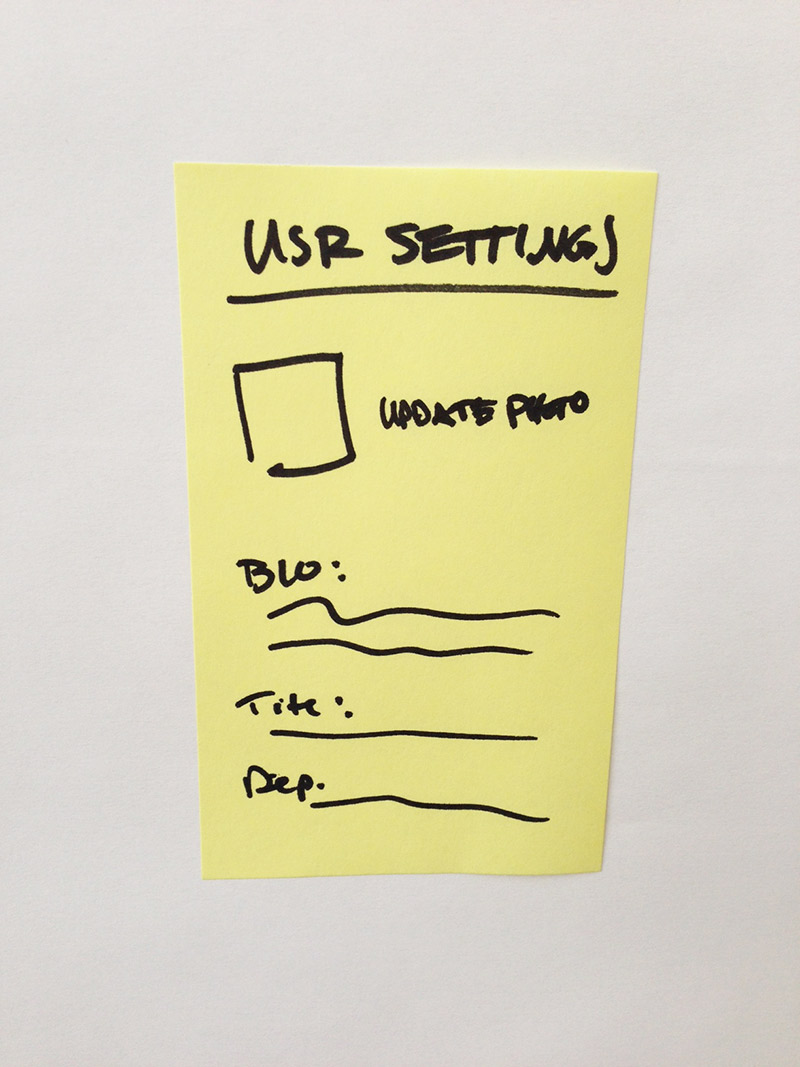 USR SETTINGS
UPDATE PHOTO
BIO:
Title:
Dep.